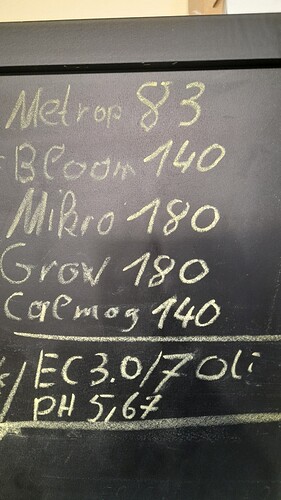 Metrop 83
Bloom 140
Mikro 180
Grow 180
Calmag 140
EC 3.0/70li
PH 5,67